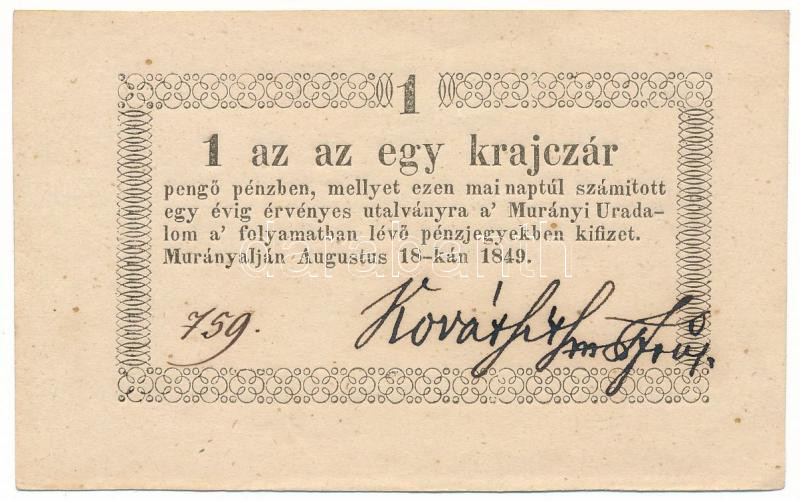 1
1 az az egy krajczár
pengő pénzben, mellyet ezen mai naptúl számitott
egy évig érvényes utalványra a' Murányi Urada-
lom a' folyamatban lévő pénzjegyekben kifizet.
Murányalján Augustus 18-kán 1849.
darabanth
759.